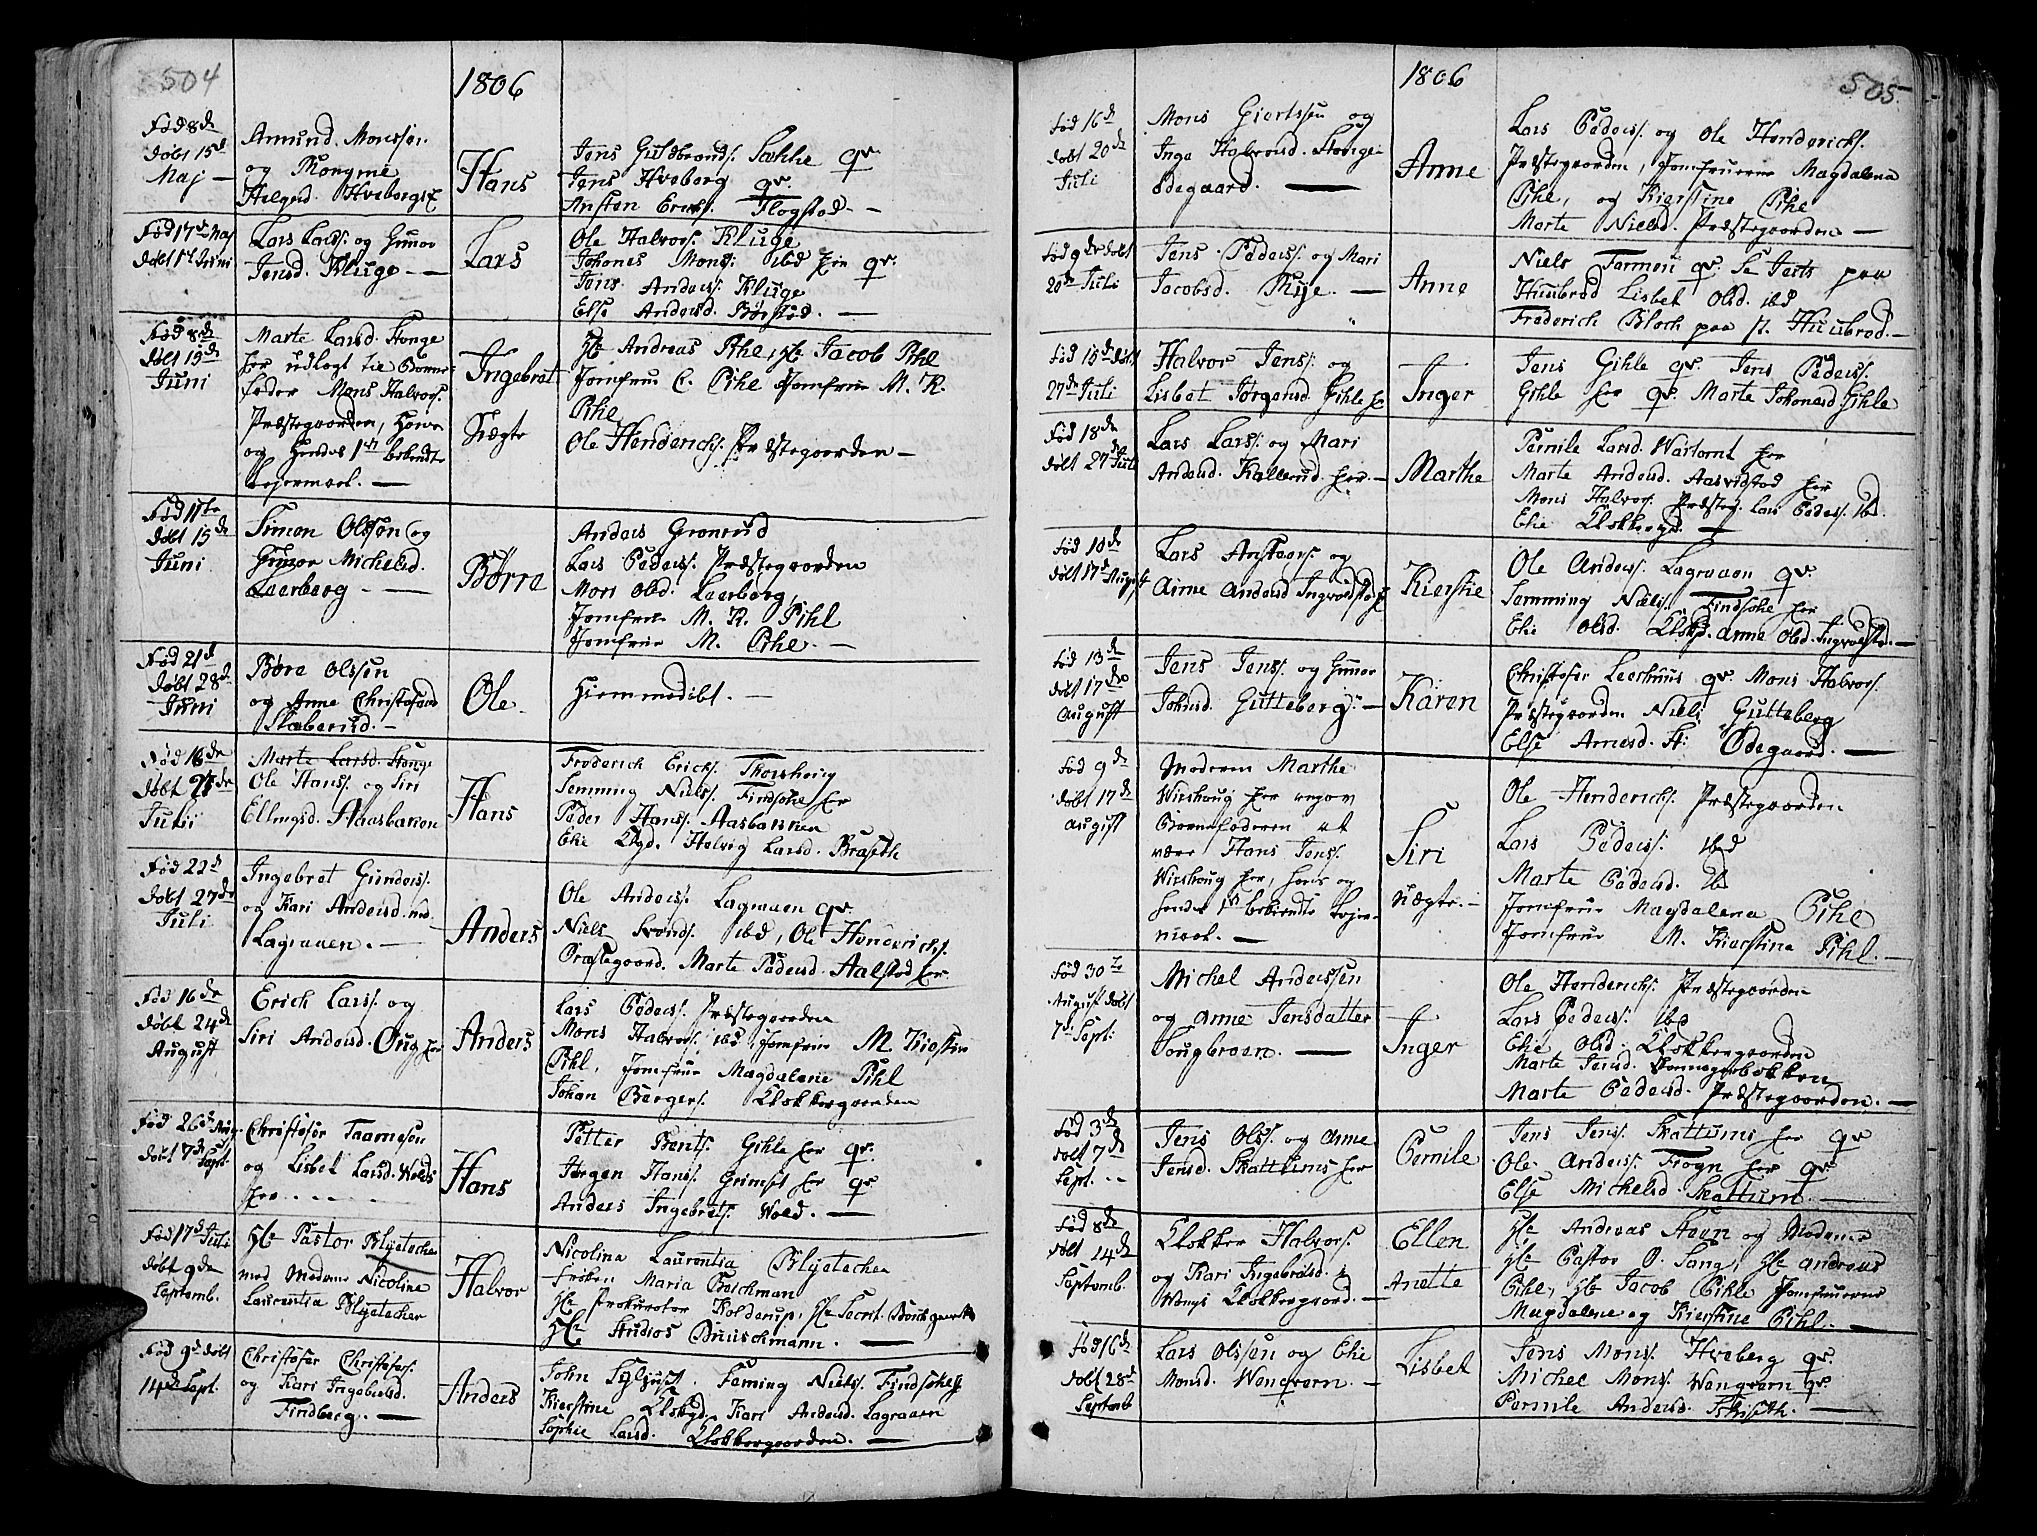 504
1806
Fød 8de
døbt 15de
Maj
Amund Monssøn
og
Helgesd. Hvebergs
Hans
Jens Guldbrands. Sække qr.
Jens Hveberg qr.
Ansten Erichs. Flogstad. —
Fød 17de Maj
døbt 1ste Juni
Lars Larss. og Gunor
Jensd. Kluge —
Lars
Ole Halvors. Kluge
Johanes Mons: ibd her qr.
Jens Anders. Kluge
Else Andersd. Børstad. —
Fød 8de
døbt 19de
Juni
Marte Larsd. Honge
her udlagt til Barne-
fader Mons Halvors.
Præstegaarden, Hans
og Hendes 1ste bekendte
Lejermaal. —
Ingebret
Nægte
Hr. Andreas Pihl, Hr. Jacob Pihl
Jomfru C. Pihl Jomfrue M. K.
Pihl
Ole Henderichs. Præstegaarden —
Fød 11te
døbt 15de
Juni
Simon Olssøn og
Gunor Michelsd.
Leerberg —
Børre
Anders Gronerud
Lars Peders. Præstegaarden
Mari Olsd. Leerberg,
Jomfrue M. K. Pihl
Jomfrue M. Pihl. —
Fød 21de
døbt 28de
Juni
Børe Olssøn
og Anne Christofersd
Skaberud. —
Ole
Hiemmedøbt. —
Fød 18de
døbt 27de
Julii
Marte Larsd. Honge
Ole Hans. og Siri
Ellingsd. Aasbakken
Hans
Frederich Erichs. Thorsherig
Semming Niels. Findsahl her
Peder Hans. Aasbakken
Elie Klgd. Helvig Larsd. Braseth
Fød 22de
døbt 27de
Juli
Ingebret Gunders.
og Kari Andersd. ned.
Lagraaen. —
Anders
Ole Anders. Lagraaen qr.
Niels Fronds. ibd, Ole Henderichs.
Præstegaard. Marte Pedersd. Aalstad her
Fød 16de
døbt 24de
August
Erich Lars. og
Siri Andersd. Oug her
Anders
Lars Peders. Præstegaarden
Mons Halvors. ibd, Jomfrue M. Kiestin
Pihl, Jomfrue Magdalene Pihl
Johan Bergers. Klokkergaarden
Fød 26de Aug.
døbt 7de Sept.
Christofer Taamesen
og Lisbet Larsd. Wolds
her
Hans
Petter Bents. Gihle her qr.
Jørgen Hans. Grimset her qr.
Anders Ingebrets. Wold. —
Fød 17de Juli
døbt 9de
Septemb.
Hr. Pastor Blytecher
med Madame Nicoline
Laurentia Blytecher
Halvor
Nicolina Laurentia Blytecher
Frøken Maria Beichman
Hr. Prokurator Kolderup, Hr. Secrt. Borchgrevink
Hr. Studios Buuschmann. —
Fød 9de døbt
14de Sept.
Christofer Christofers.
og Kari Ingebretsd.
Findberg. —
Anders
John Syljuset. Feming Niels. Findsahl
Kierstine Klokgd. Kari Andersd. Lagraaen
Sophie Larsd. Klokkergaarden. —
505
1806
Fød 16de
døbt 20de
Juli
Mons Giertssen og
Inga Halvorsd. Honge-
ødegaard. —
Anne
Lars Peders. og Ole Henderichs.
Præstegaarden, Jomfruerne Magdalena
Pihl, og Kierstine Pihl
Marte Nielsd. Præstegaarden —
Fød 9de døbt
20de Juli
Jens Peders. og Mari
Jacobsd. Rye. —
Anne
Niels Tarmoen qr: Se Jerts paa
Huusbrød Lisbet Olsd. ibd
Frederich Bloch paa p. Huusbrød. —
Fød 15de døbt
27de Juli
Halvor Jens. og
Lisbet Jørgensd. Gihle her
Inger
Jens Gihle qr. Jens Peders.
Gihle her qr. Marte Johanesd Gihle
Fød 18de
døbt 27de Juli
Lars Lars. og Mari
Andersd. Kallerud her. —
Marthe
Pernile Larsd. Wartomt her
Marte Andersd. Aasvidstad her
Mons Halvors. Præsteg. Lars Peders. ibd.
Elie Klokkergrd. —
Fød 10de
døbt 17de August
Lars Anstens. og
Anne Andersd Ingvoldstad
Kierstie
Ole Anders. Lagraaen qr.
Semming Niels. Findsahl her
Elie Olsd. Klokgd. Anne Olsd. Ingvolstad. —
Fød 13de
døbt 17de
August
Jens Jens. og Gunor
Johnsd. Gutteberg: —
Karen
Christofer Leerhuus qr. Mons Halvors.
Præstegaarden Niels Gutteberg
Else Arnesd. H: Ødegaard. —
Fød 9de
døbt 17de
August
Moderen Marthe
Wirshoug her angav
Barnefaderen at
være Hans Jens.
Wirshoug her, hans og
hendes 1ste bekiendte Lejer-
maal. —
Siri
nægte. —
Ole Henderichs. Præstegaarden
Lars Peders. ibd
Marte Pedersd. ib
Jomfrue Magdalena Pihl
Jomfrue M. Kierstina Pihl. —
Fød 30te
August døbt
7de Sept:
Michel Anderssen
og Anne Jensdatter
Sougbroen. —
Inger
Ole Henderichs. Præstegaarden
Lars Peders. ibd
Elie Olsd. Klokkergaarden
Marte Jensd.
Marte Pedersd. Præstegaarden. —
Fød 3de
døbt 7de
Sept.
Jens Ols. og Anne
Jensd. Skattums her
Pernile
Jens Jens. Skattums her qr
Ole Anders. Frogn her qr
Else Michelsd. Skattum. —
Fød 8de
døbt 14de
Septemb.
Klokker Halvors.
og Kari Ingebrøtsd.
Wangs Klokkergaard. —
Ellen
Anette
Hr. Andreas Steen og Madame
Hr. Pastor O. Sang, Hr. Andreas
Pihl, Hr. Jacob Pihle Jomfruerne
Magdalene og Kierstine Pihl. —
Fød 16de
døbt 28de
Septemb
Lars Olssen og Elie
Monsd. Wangvarn. —
Lisbet
Jens Mons. Hveberg qr.
Michel Mons. Wangvarn qr.
Pernile Andersd. —